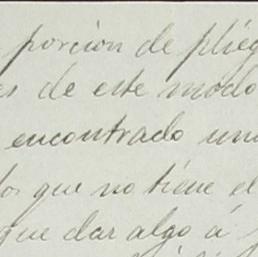 porcion de plieg
es de este modo
encontrado un
que no tiene el
que dar algo á